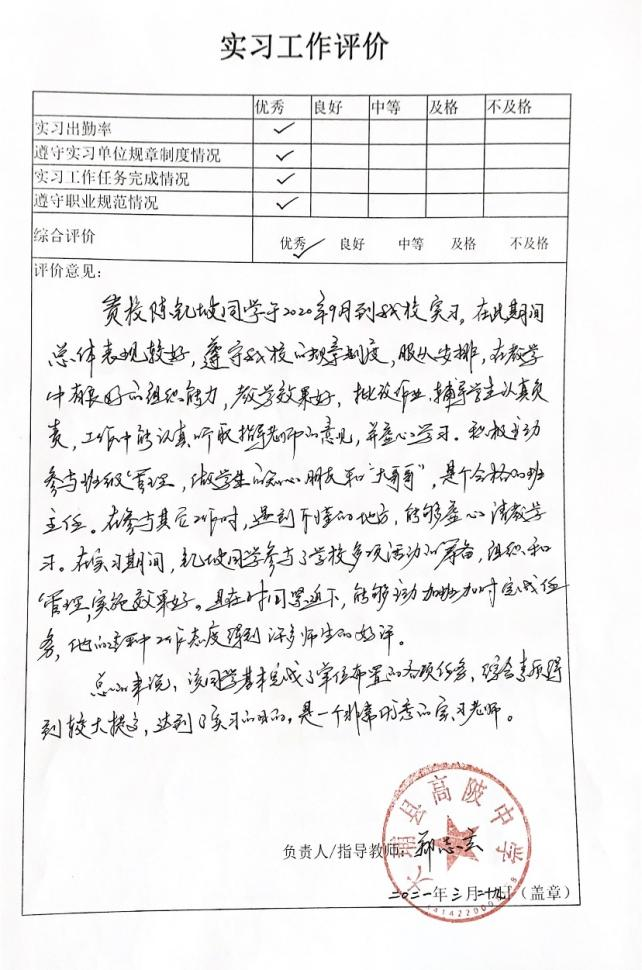 实习工作评价
优秀 良好 中等 及格 不及格
实习出勤率 ✓
遵守实习单位规章制度情况 ✓
实习工作任务完成情况 ✓
遵守职业规范情况 ✓
综合评价 优秀✓ 良好 中等 及格 不及格
评价意见:
贵校陈凯坡同学于2020年9月到我校实习。在此期间
总体表现较好,遵守我校的规章制度,服从安排,在教学
中有良好的组织能力,教学效果好,批改作业,辅导学生认真负
责,工作中能认真听取指导老师的意见,并虚心学习。积极主动
参与班级管理,做学生的知心朋友和“大哥哥”,是个合格的班
主任。在参与其它工作时,遇到不懂的地方,能够虚心请教学
习。在实习期间,凯坡同学参与了学校多项活动的筹备,组织和
管理,实施效果好。且在时间紧迫下,能够主动加班加时完成任
务,他的工作态度得到许多师生的好评。
总的来说,该同学基本完成了单位布置的各项任务,综合素质得
到较大提高,达到了实习的目的,是一个非常优秀的实习老师。
负责人/指导教师:郑志
大埔县高陂中学
二〇二一年三月二十九日(盖章)